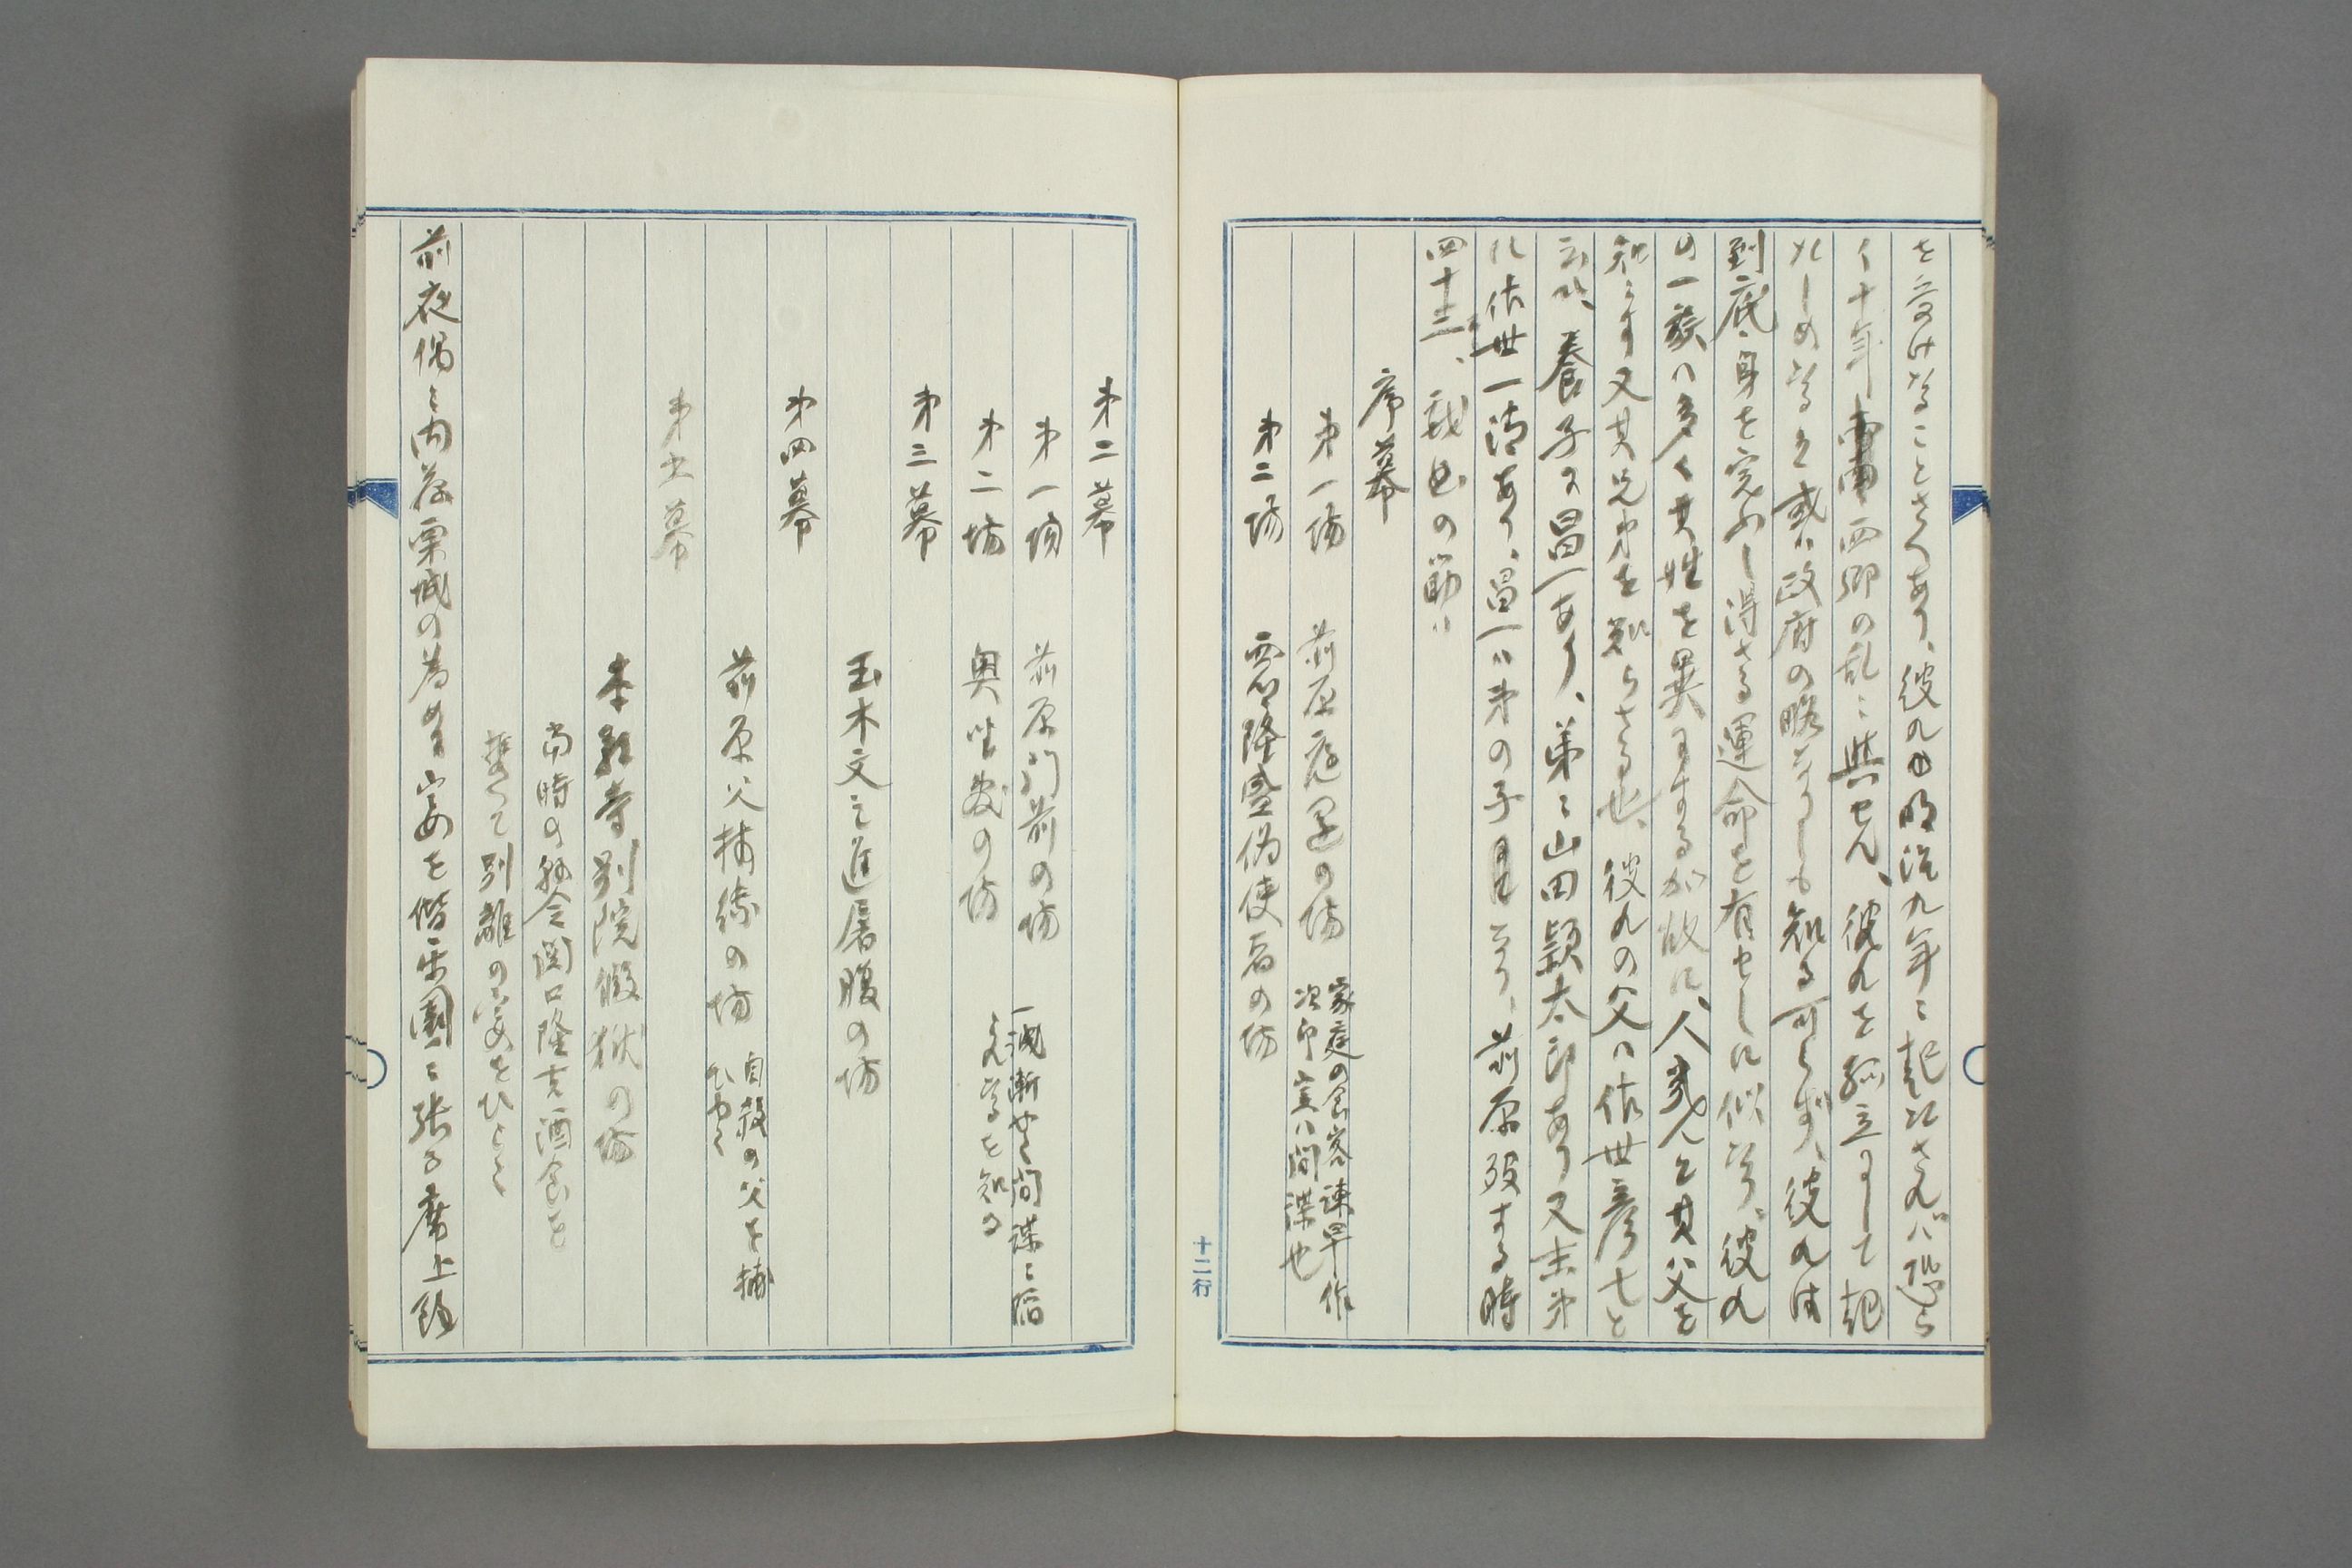 を受けなることさへあり、彼れ明治九年ニ起たされバ恐ら
く十年西郷の乱ニ與せん、彼れを孤立にして起
れしめなるを或ハ政府の略なりしも知る可らず、彼れは
到底身を完ふし得さる運命を有せしに似なり、彼れ
の一族ハ多く其姓を異にするが故に、人或ハ其父を
知らず又其兄弟を知らさる也、彼れの父ハ佐世彦七と
云ひ、養子ニ昌一あり、弟ニ山田頴太郎あり又末弟
に佐世一清あり、昌一ハ弟の子なり、前原歿する時
四十三、戯曲の筋ハ
序幕
第一場 前原庭園の場 家庭の食客諫早作
次郎実ハ間諜也
第二場 西郷隆盛偽使者の場
十二行
第二幕
第一場 前原門前の場 一誠漸やく間諜ニ陥
るを知る
第二場 奥坐敷の場
第三幕
玉木文之進屠腹の場
第四幕
前原父捕縛の場 自殺の父を捕
第五幕
別院假獄の場
當時の縣令関口隆吉酒食を
別離の宴をひらく
前夜偶ニ内藤栗城の為め宴を偕楽園ニ張る席上頭